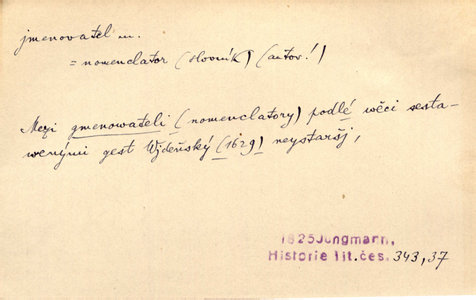 jmenovatel m.
= nomenclator (slovník) (autor!)
Mezi gmenowateli (nomenclatory) podlé wěci sesta-
wenými gest Wjdeňský (1629) neystaršj,
1825 Jungmann,
Historie lit.čes. 343,37